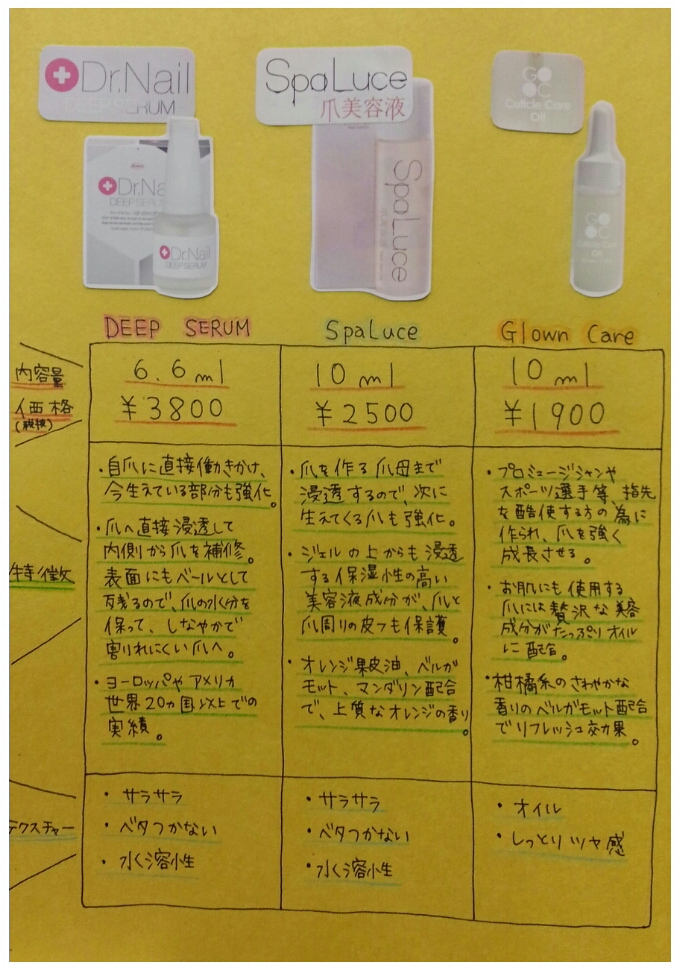 Dr.Nail
DEEP SERUM
SpaLuce
爪美容液
GO
OC
Cuticle Care
Oil
Dr.Na
DEEP SERU
Dr.Nail
DEEP SERUM
SpaLuce
GO
OC
Cuticle Care
Oil
DEEP SERUM
SpaLuce
Glown Care
内容量
6.6ml
10ml
10ml
価格
(税抜)
¥3800
¥2500
¥1900
特徴
・自爪に直接働きかけ、
今生えている部分も強化。
・爪へ直接浸透して
内側から爪を補修。
表面にもベールとして
残るので、爪の水分を
保って、しなやかで
割れにくい爪へ。
・ヨーロッパやアメリカ
世界20ヵ国以上での
実績。
・爪を作る爪母まで
浸透するので、次に
生えてくる爪も強化。
・ジェルの上からも浸透
する保湿性の高い
美容液成分が、爪と
爪周りの皮フも保護。
・オレンジ果皮油、ベルガ
モット、マンダリン配合
で、上質なオレンジの香り。
・プロミュージシャンや
スポーツ選手等、指先
を酷使する方の為に
作られ、爪を強く
成長させる。
・お肌にも使用する
爪には贅沢な美容
成分がたっぷりオイル
に配合。
・柑橘系のさわやかな
香りのベルガモット配合
でリフレッシュ効果。
テクスチャー
・サラサラ
・ベタつかない
・水溶性
・サラサラ
・ベタつかない
・水溶性
・オイル
・しっとりツヤ感